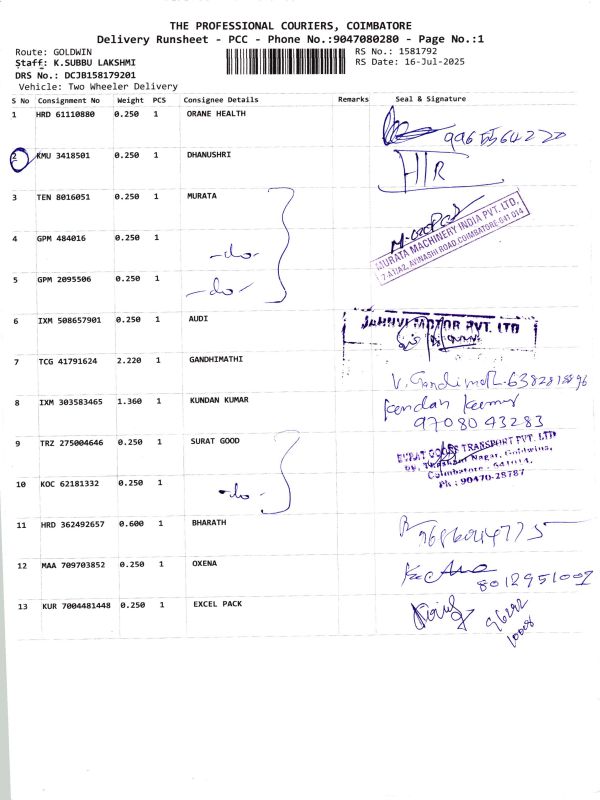 THE PROFESSIONAL COURIERS, COIMBATORE
Delivery Runsheet - PCC - Phone No.:9047080280 - Page No.:1
Route: GOLDWIN
RS No.: 1581792
Staff: K.SUBBU LAKSHMI
RS Date: 16-Jul-2025
DRS No.: DCJB158179201
Vehicle: Two Wheeler Delivery
S No Consignment No Weight PCS Consignee Details Remarks Seal & Signature
1 HRD 61110880 0.250 1 ORANE HEALTH
2 KMU 3418501 0.250 1 DHANUSHRI
HR
3 TEN 8016051 0.250 1 MURATA
MURATA MACHINERY INDIA PVT. LTD,
AVINASHI ROAD, COIMBATORE-641 014
4 GPM 484016 0.250 1 -do-
5 GPM 2095506 0.250 1 -do-
6 IXM 508657901 0.250 1 AUDI
JAHNVI MOTOR PVT. LTD
7 TCG 41791624 2.220 1 GANDHIMATHI
8 IXM 303583465 1.360 1 KUNDAN KUMAR
Kundan Kumar
9708043283
9 TRZ 275004646 0.250 1 SURAT GOOD
SURAT GOODS TRANSPORT PVT. LTD
Nagar, Goldwins,
Coimbatore - 641014.
Ph : 90470-28787
10 KOC 62181332 0.250 1 -do-
11 HRD 362492657 0.600 1 BHARATH
12 MAA 709703852 0.250 1 OXENA
8012951002
13 KUR 7004481448 0.250 1 EXCEL PACK
96292
10008